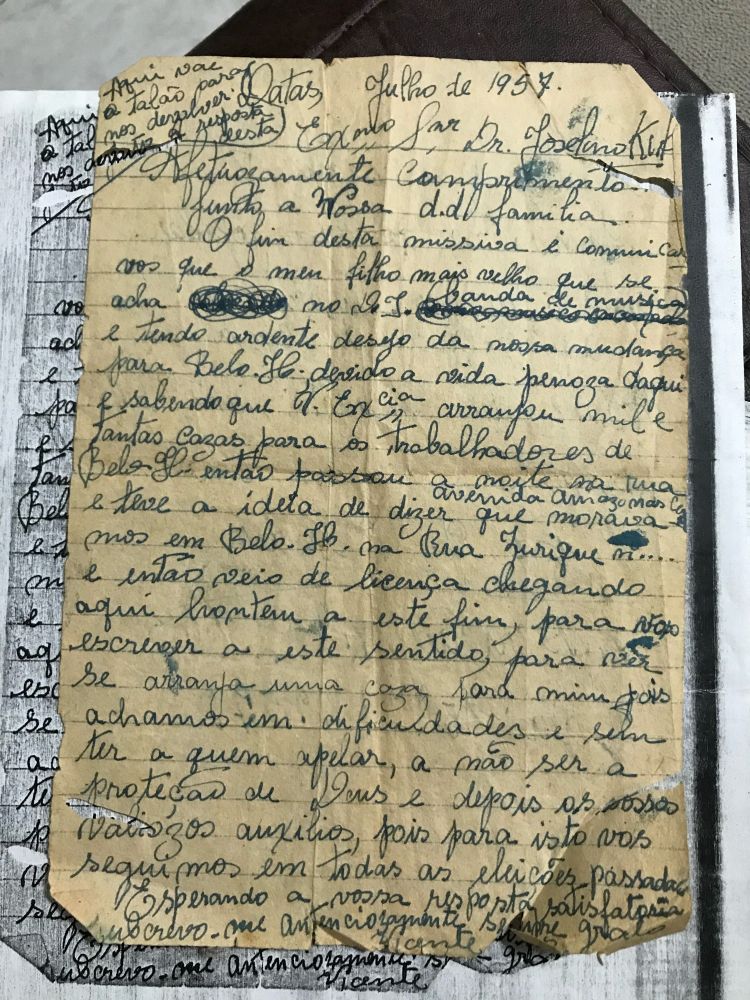 Aqui vae
o talão para
nos devolver.
a resposta
desta
Datas, Julho de 1957.
Exmo Snr Dr. Joselino
Afetuozamente comprimento
junto a Vossa d.d. familia.
O fim desta missiva é comunicar
vos que o meu filho mais velho que se
acha no D.I. banda de musica
e tendo ardente desejo da nossa mudança
para Belo-H. devido a vida penoza daqui
e sabendo que V. Excia arranjou mil e
tantas cazas para os trabalhadores de
Belo-H. então passou a noite na rua
avenida amazonas
e teve a ideia de dizer que morava
mos em Belo-H. na Rua Zurique n....
e então veio de licença chegando
aqui hontem a este fim, para vos
escrever a este sentido, para ver
se arranja uma caza para mim pois
achamos em dificuldades e sem
ter a quem apelar, a não ser a
proteção de Deus e depois os vossos
valiozos auxilios, pois para isto vos
seguimos em todas as eleições passadas
Esperando a vossa resposta satisfatoria
subscrevo-me atenciozamente sempre grato
Vicente
Aqui
subcrevo-me atenciozamente
Vicente